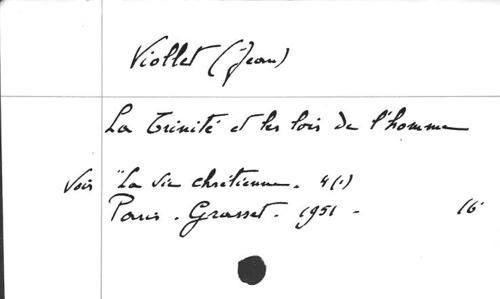 Viollet (Jean)
La Trinité et les lois de l'homme
Voir "La vie chrétienne. 4(1)
Paris. Grasset. 1951 - 16